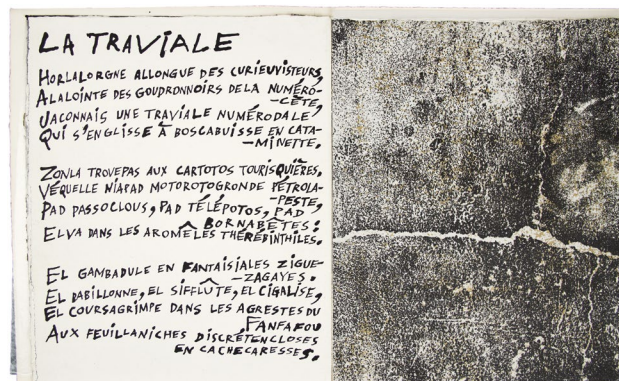 LA TRAVIALE
HORLALORGNE ALLONGUE DES CURIEUVISTEURS,
ALALOINTE DES GOUDRONNOIRS DELA NUMÉRO-
-CÈTE,
JACONNAIS UNE TRAVIALE NUMÉRODALE
QUI S'ENGLISSE À BOSCABUISSE EN CATA-
-MINETTE.
ZONLA TROVEPAS AUX CARTOTOS TOURISQUIÈRES.
VÉQUELLE NIAPAD MOTOROTOGRONDE PÉTROLA-
-PESTE,
PAD PASSOCLOUS, PAD TÉLÉPOTOS, PAD
BORNABÊTES:
ELVA DANS LES AROMÊLES THÉRÉBINTHILES.
EL GAMBADULE EN FANTAISIALES ZIGUE-
-ZAGAYES.
EL BABILLONNE, EL SIFFLÛTE, EL CIGALISE,
EL COURSAGRIMPE DANS LES AGRESTES DU
FANFAFOU
AUX FEUILLANICHES DISCRÉTENCLOSES
EN CACHECARESSES.